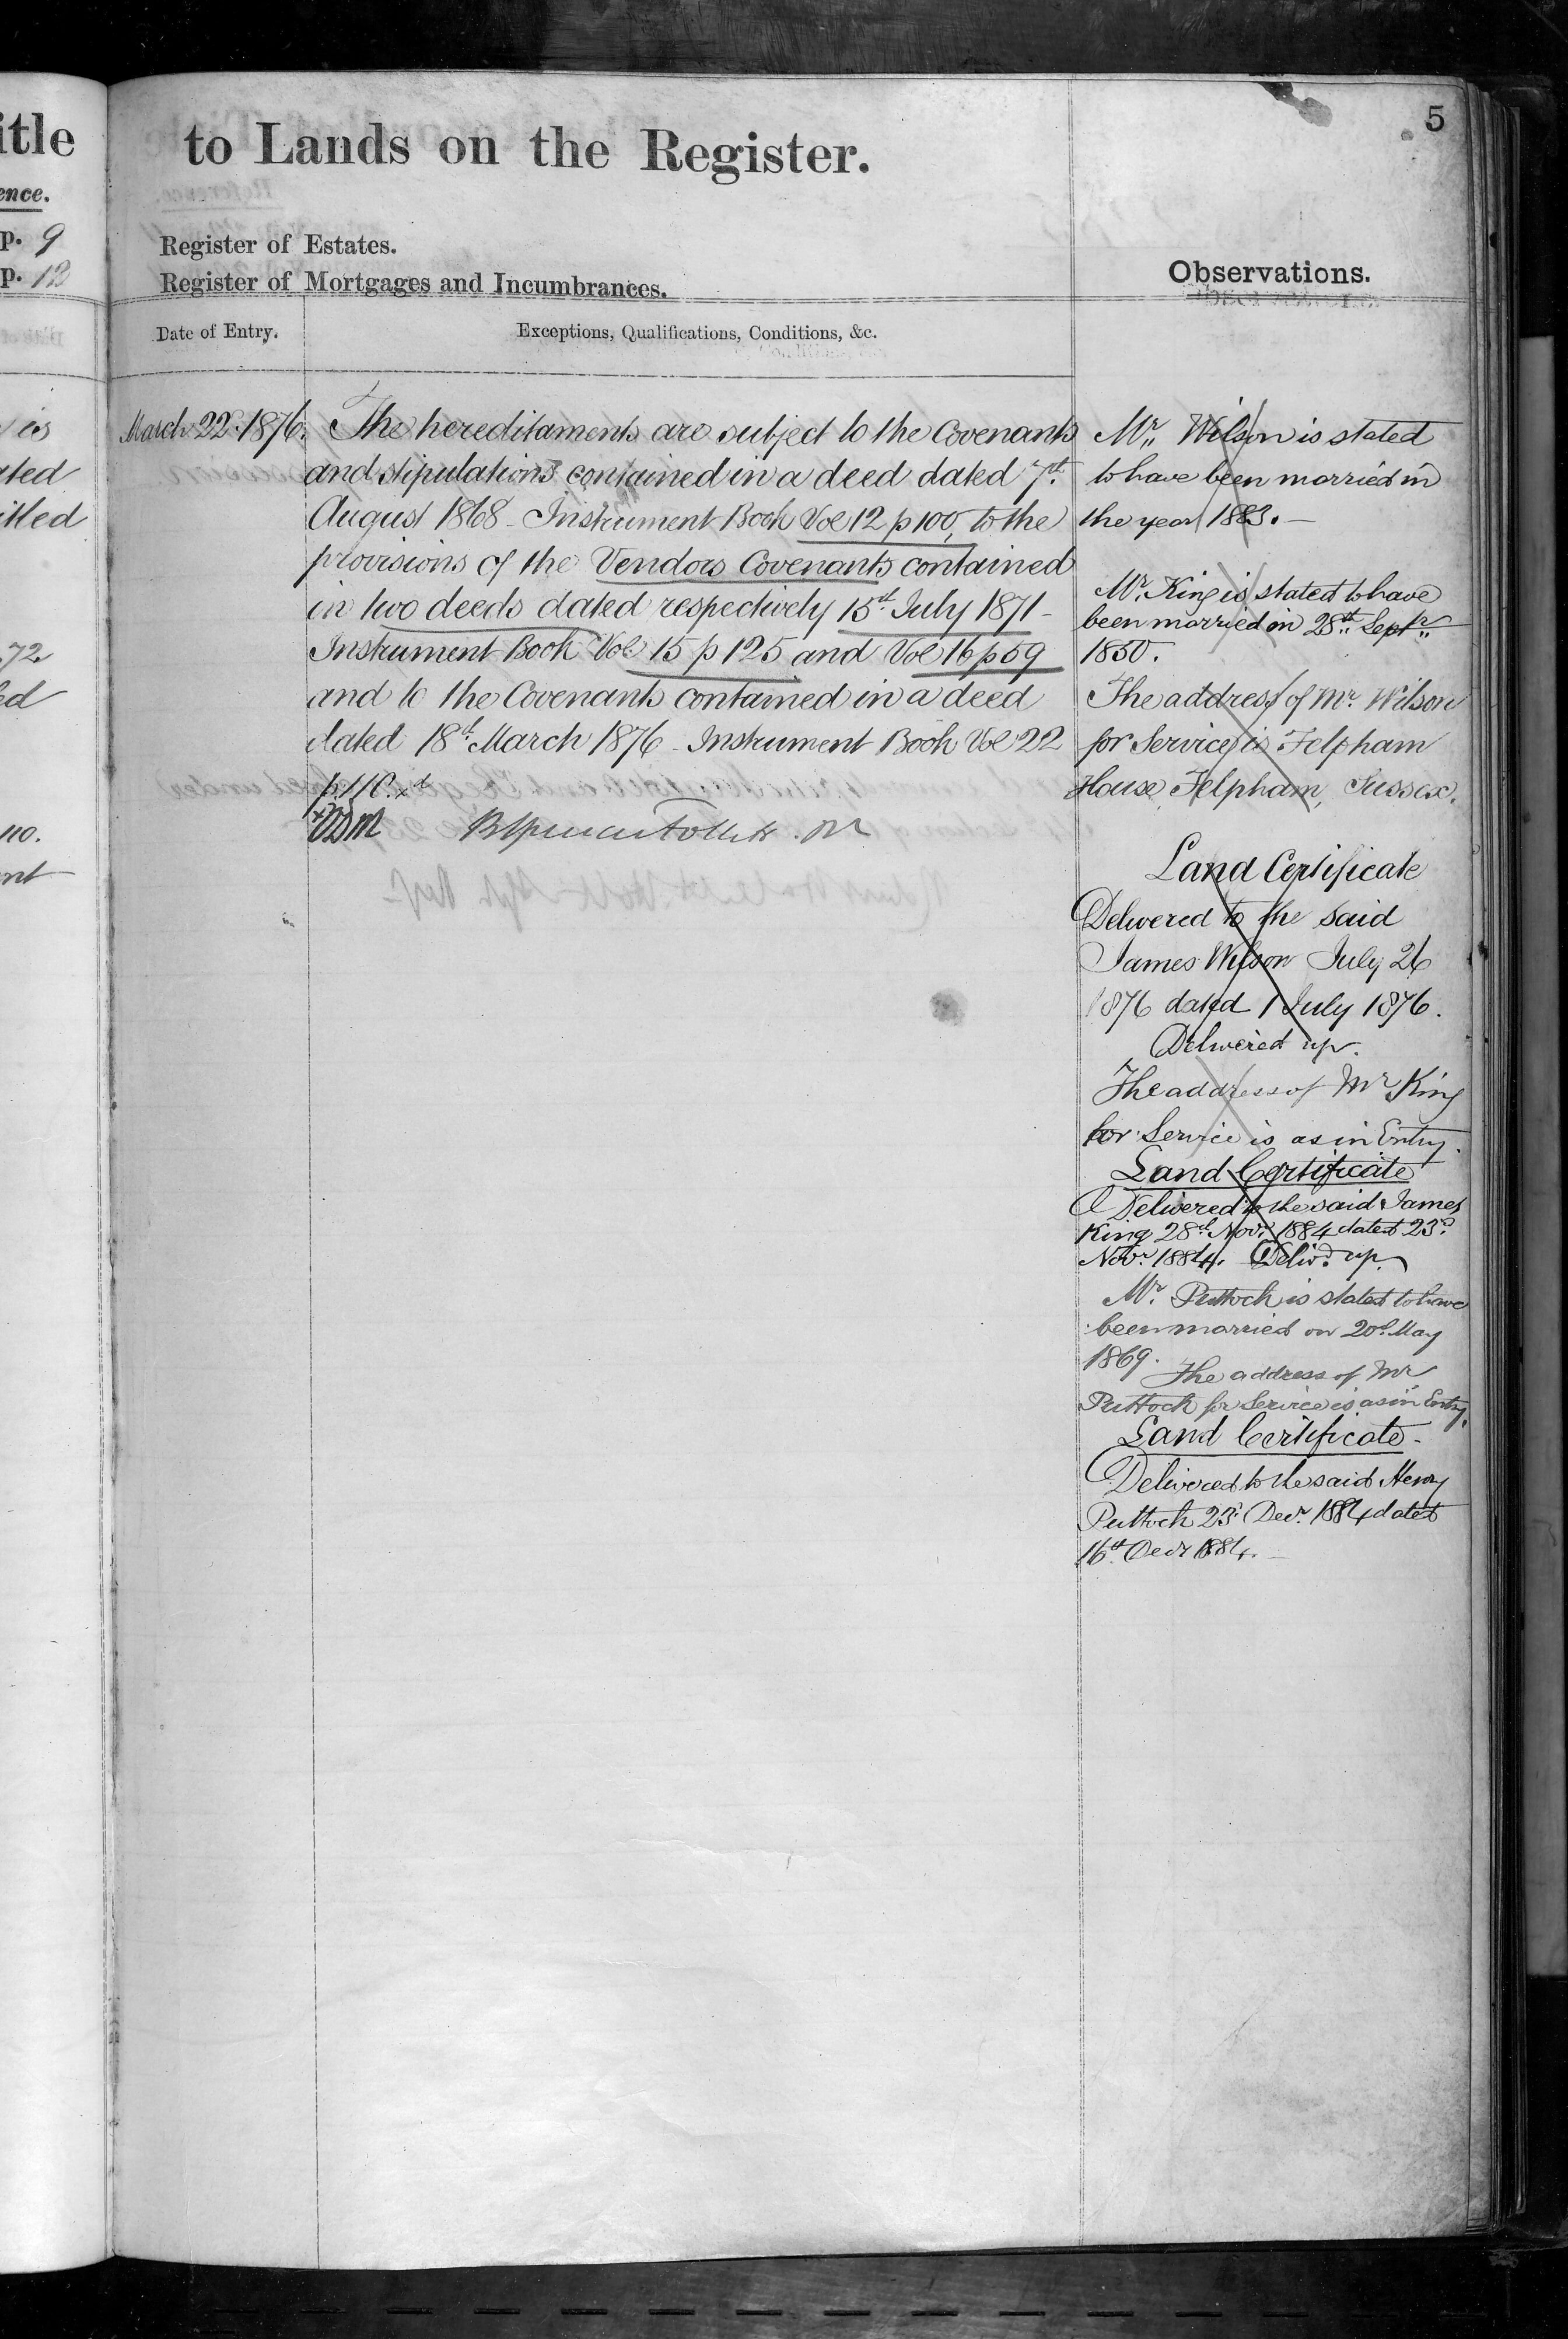 itle
ence.
p. 9
p. 12
is
ated
itled
72
ed
110.
ent
5
to Lands on the Register.
Register of Estates.
Register of Mortgages and Incumbrances.
Observations.
Date of Entry.
Exceptions, Qualifications, Conditions, &c.
March 22. 1876.
The hereditaments are subject to the Covenants
and stipulations contained in a deed dated 7th
August 1868 - Instrument Book Vol 12 p 100, to the
provisions of the Vendors Covenants contained
in two deeds dated respectively 15th July 1871 -
Instrument Book Vol 15 p 125 and Vol 16 p 59
and to the Covenants contained in a deed
dated 18th March 1876 - Instrument Book Vol 22
p 110.
Mr. Wilson is stated
to have been married in
the year 1883. -
Mr. King is stated to have
been married on 28th Septr
1850.
The address of Mr. Wilson
for Service is Felpham
House, Felpham, Sussex.
Land Certificate
Delivered to the said
James Wilson July 26
1876 dated 1 July 1876.
Delivered up.
The address of Mr King
for Service is as in Entry.
Land Certificate
Delivered to the said James
King 28th Novr 1884 dated 23rd
Novr 1884. Delivd up.
Mr. Puttock is stated to have
been married on 20th May
1869.
The address of Mr
Puttock for Service is as in Entry.
Land Certificate -
Delivered to the said Henry
Puttock 23rd Decr. 1884 dated
16th Decr 1884. -